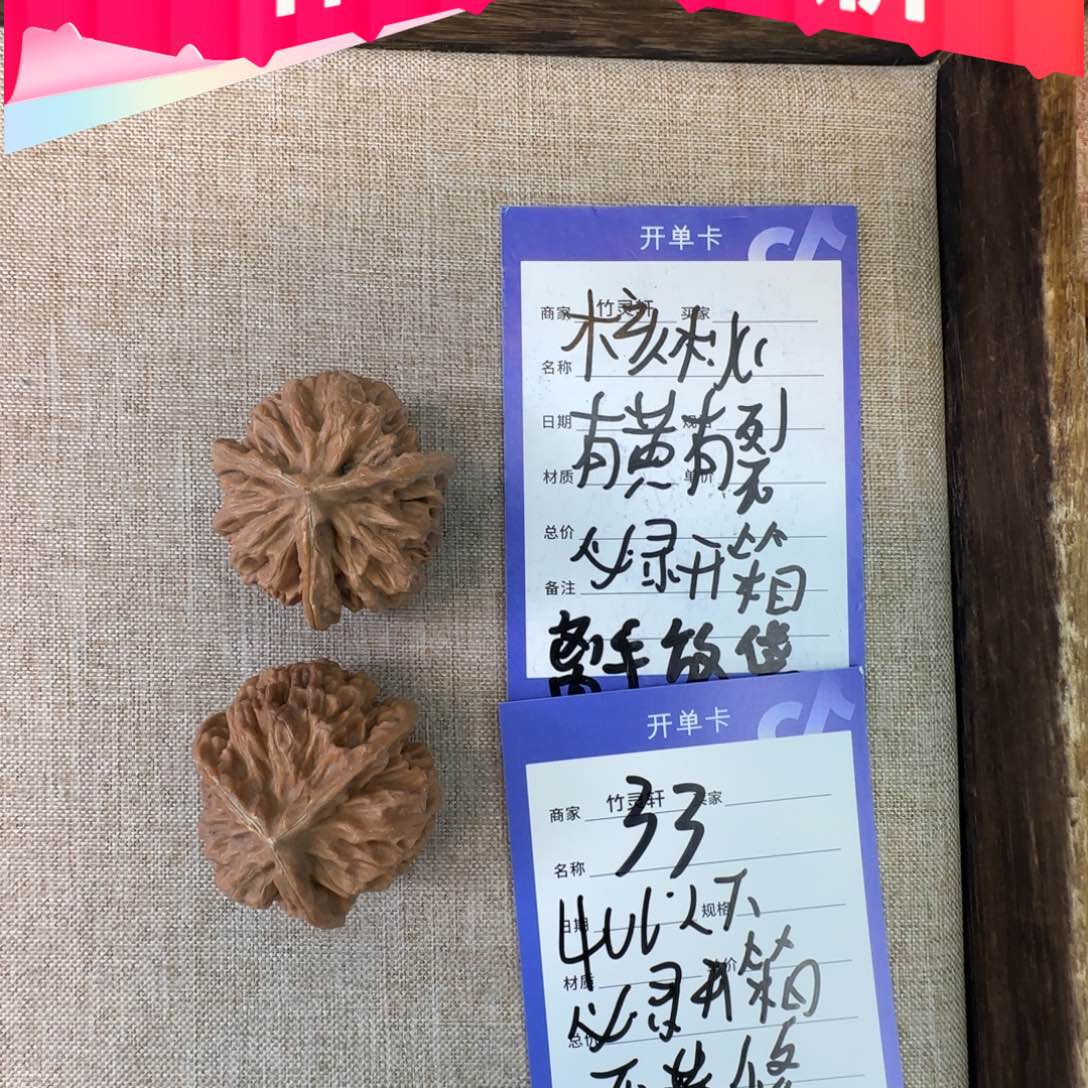 开单卡
商家 竹灵轩 买家
核桃
名称
日期 规格
有黄有裂
材质 单价
总价
必录开箱
备注
离手放偻
开单卡
商家 竹灵轩 买家
33
名称
日期 规格
以下
材质 单价
必录开箱
总价